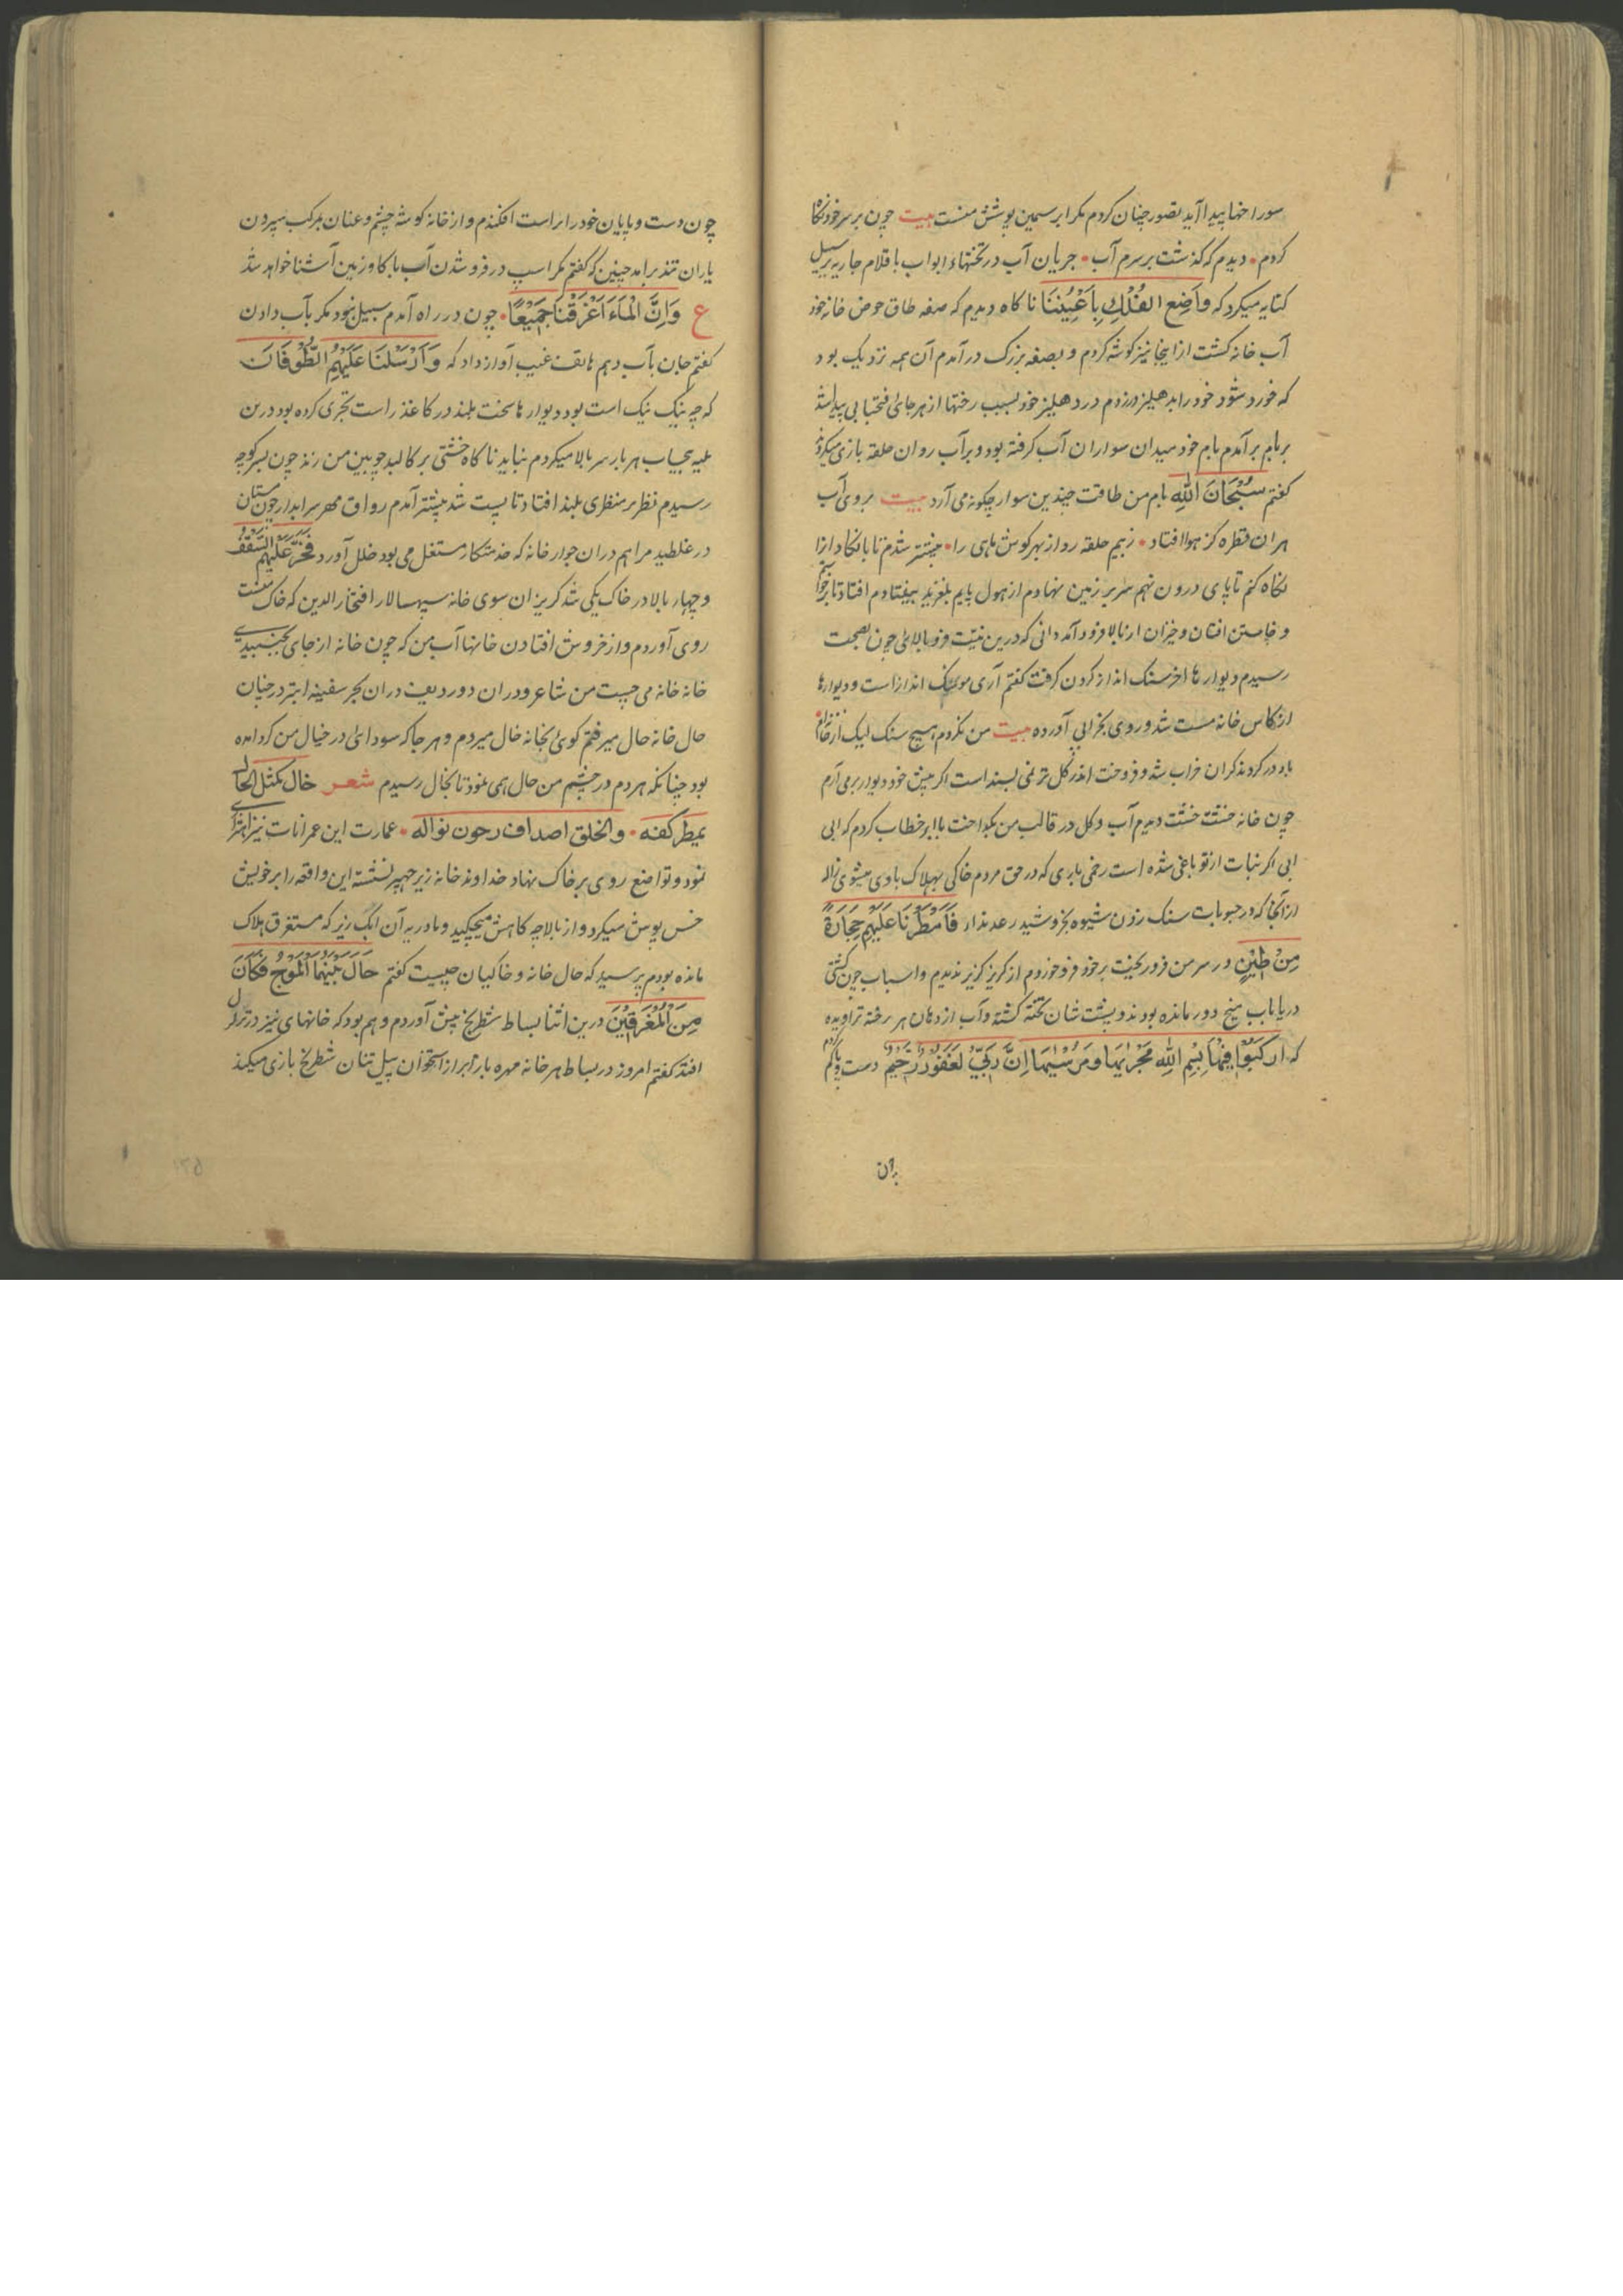 سوراخها پیدا آید تصور چنان کردم مکر ابر سیمین پوشش منست بیت چون بر سر خود نکاه
کردم • دیدم که کذشت بر سرم آب • جریان آب در تختهاء ابواب باقلام جاریه بر سبیل
کنایه میکرد که واَضِع الفُلْکِ بِاَعْیُنِنَا ناکاه دیدم که صفه طاق حوض خانه خود
آب خانه کشت ازاینجا نیز کوشه کردم و بصفه بزرک درآمدم آن همه نزدیک بود
که خورد شود خود را بدهلیز درزدم در دهلیز خود بسبب رختها از هر جای فتحبابی پیدا شد
بر بام برآمدم بام خود میدان سواران آب کرفته بود و بر آب روان حلقه بازی میکردند
کفتم سُبْحَانَ اللهِ بام من طاقت چندین سوار چکونه می آرد بیت بر وی آب
هر ان قطره کز هوا افتاد • زبیم حلقه رو از بهر کوش ماهی را • پیشتر شدم تا بالکاد ازا
نکاه کنم تا پای درون نهم سر بر زمین نهادم از هول پایم بلغزید بیفتادم افتادنا برخوا
و خاستن افتان و خیزان از بالا فرود آمد دانی که درین نیّت فروبالای چون بصحت
رسیدم دیوارها اخر سنک انداز کردن کرفت کفتم آری موسم سنک اندازاست و دیوارها
از کاس خانه مست شد و روی بخرابی آورده بیت من نکردم هیچ سنک لیک از خانه
باد در کرد بدکران خراب شد و فروخت اندر کل تر نمی بسند است اکر پیش خود دیوار بر می آرم
چون خانه خشت خشت دیدم آب و کل در قالب من بکداخت با ابر خطاب کردم که ابی
ابی اکر نبات از تو باغی شده است رخی باری که در حق مردم خاکی بهلاک بادی میشوی ژاله
ازآنجا که در حبوبات سنک زدن شیوه بخروشید رعدندار فَاَمْطَرْنَا عَلَیْهِمْ حِجَارَةً
مِنْ طِیْنٍ و بر سر من فرو ریخت بر خود فرو خوردم از کریز کزیر ندیدم و اسباب چون کشتی
دریا باب میخ دور مانده بودند و پشت شان تخته کشته و آب از دهان هر رخنه تراویده
که ارکبُوا فِیْهَا بِسْمِ اللهِ مَجْریٰهَا وَمُرْسٰیهَا اِنَّ رَبّیْ لَغَفُوْرٌ رَحِیْمٌ دست و پا کم کردم
بران
چون دست و پایان خود را براست افکندم و از خانه کوشه چشم و عنان بمرکب سپردن
یاران تند برامد چنین که کفتم مکر اسپ در فرو شدن آب با کاو زمین آشنا خواهد شد
ع وَاِنَّ الْمَاءَ اَغْرَقْنَا جَمِیْعًا • چون در راه آمدم سبیل نبود مکر بآب دادن
کفتم جان بآب دهم هاتف غیب آواز داد که وَاَرْسَلْنَا عَلَیْهِمُ الطُّوْفَانَ
که چه نیک نیک است بود دیوارها سخت بلند در کاغذ راست تجری کرده بود درین
بلیه بحساب هر بار سر بالا میکردم نباید ناکاه خشتی بر کالبد چوبین من زند چون بسر کوچه
رسیدم نظر بر منظری بلند افتاد تا پست شد پیشتر آمدم رواق مهر سرابدار چون مستان
در غلطید مرا هم دران جوار خانه که خدمتکار مستغل می بود خلل آورد فَخَرَّ عَلَیْهِمُ السَّقْفُ
و چهار بالا در خاک یکی شد کریزان سوی خانه سپهسالار افتخار الدین که خاک منست
روی آوردم و از خروش افتادن خانها آب من که چون خانه از جای بجنبیدی
خانه خانه می جست من شاعر و دران دور دیف دران بحر سفینه ابتر درچنان
حال خانه حال میرفتم کوی بخانه خال میردم و هر جا که سودائی در خیال من کردآمده
بود چنانکه هردم در چشم من حال همی نمود تا بخال رسیدم شعر خال کمثل الخال
یمطر کفه • والخلق اصداف رجون نواله • عمارت این عمرانات نیز اهتزازی
نمود و تواضع روی بر خاک نهاد خداوند خانه زیر چپر نشسته این واقعه را بر خویش
خس پوش میکرد و از بالا چه کاهش میچکید و مادر به آن انک ریز که مستغرق هلاک
مانده بودم پرسید که حال خانه و خاکیان چیست کفتم حَالَ بَیْنَهُمَا الْمَوْجُ فَکَانَ
مِنَ الْمُغْرَقِیْنَ درین اثنا بساط شطرنج پیش آوردم و هم بود که خانهای نیز در تزلزل
افتد کفتم امروز در بساط هر خانه مهره بار ابر از استخوان پیل تنان شطرنج بازی میکند